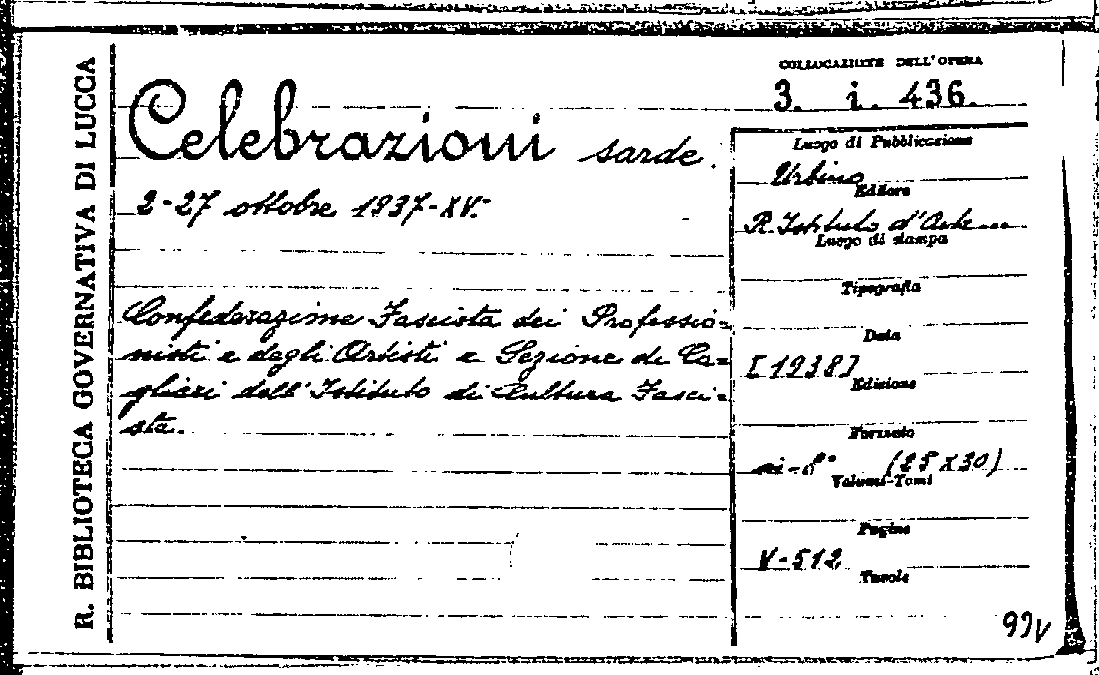 R. BIBLIOTECA GOVERNATIVA DI LUCCA
Celebrazioni sarde.
2-27 ottobre 1937-XV.
Confederazione Fascista dei Professio=
nisti e degli Artisti e Sezione di Ca=
gliari dell'Istituto di Cultura Fasci=
sta.
COLLOCAZIONE DELL'OPERA
3. i. 436.
Luogo di Pubblicazione
Urbino
Editore
R. Istituto d'Arte
Luogo di stampa
Tipografia
Data
[1938]
Edizione
Formato
in-8° (25 x 30)
Volumi-Tomi
Pagine
V-512
Tavole